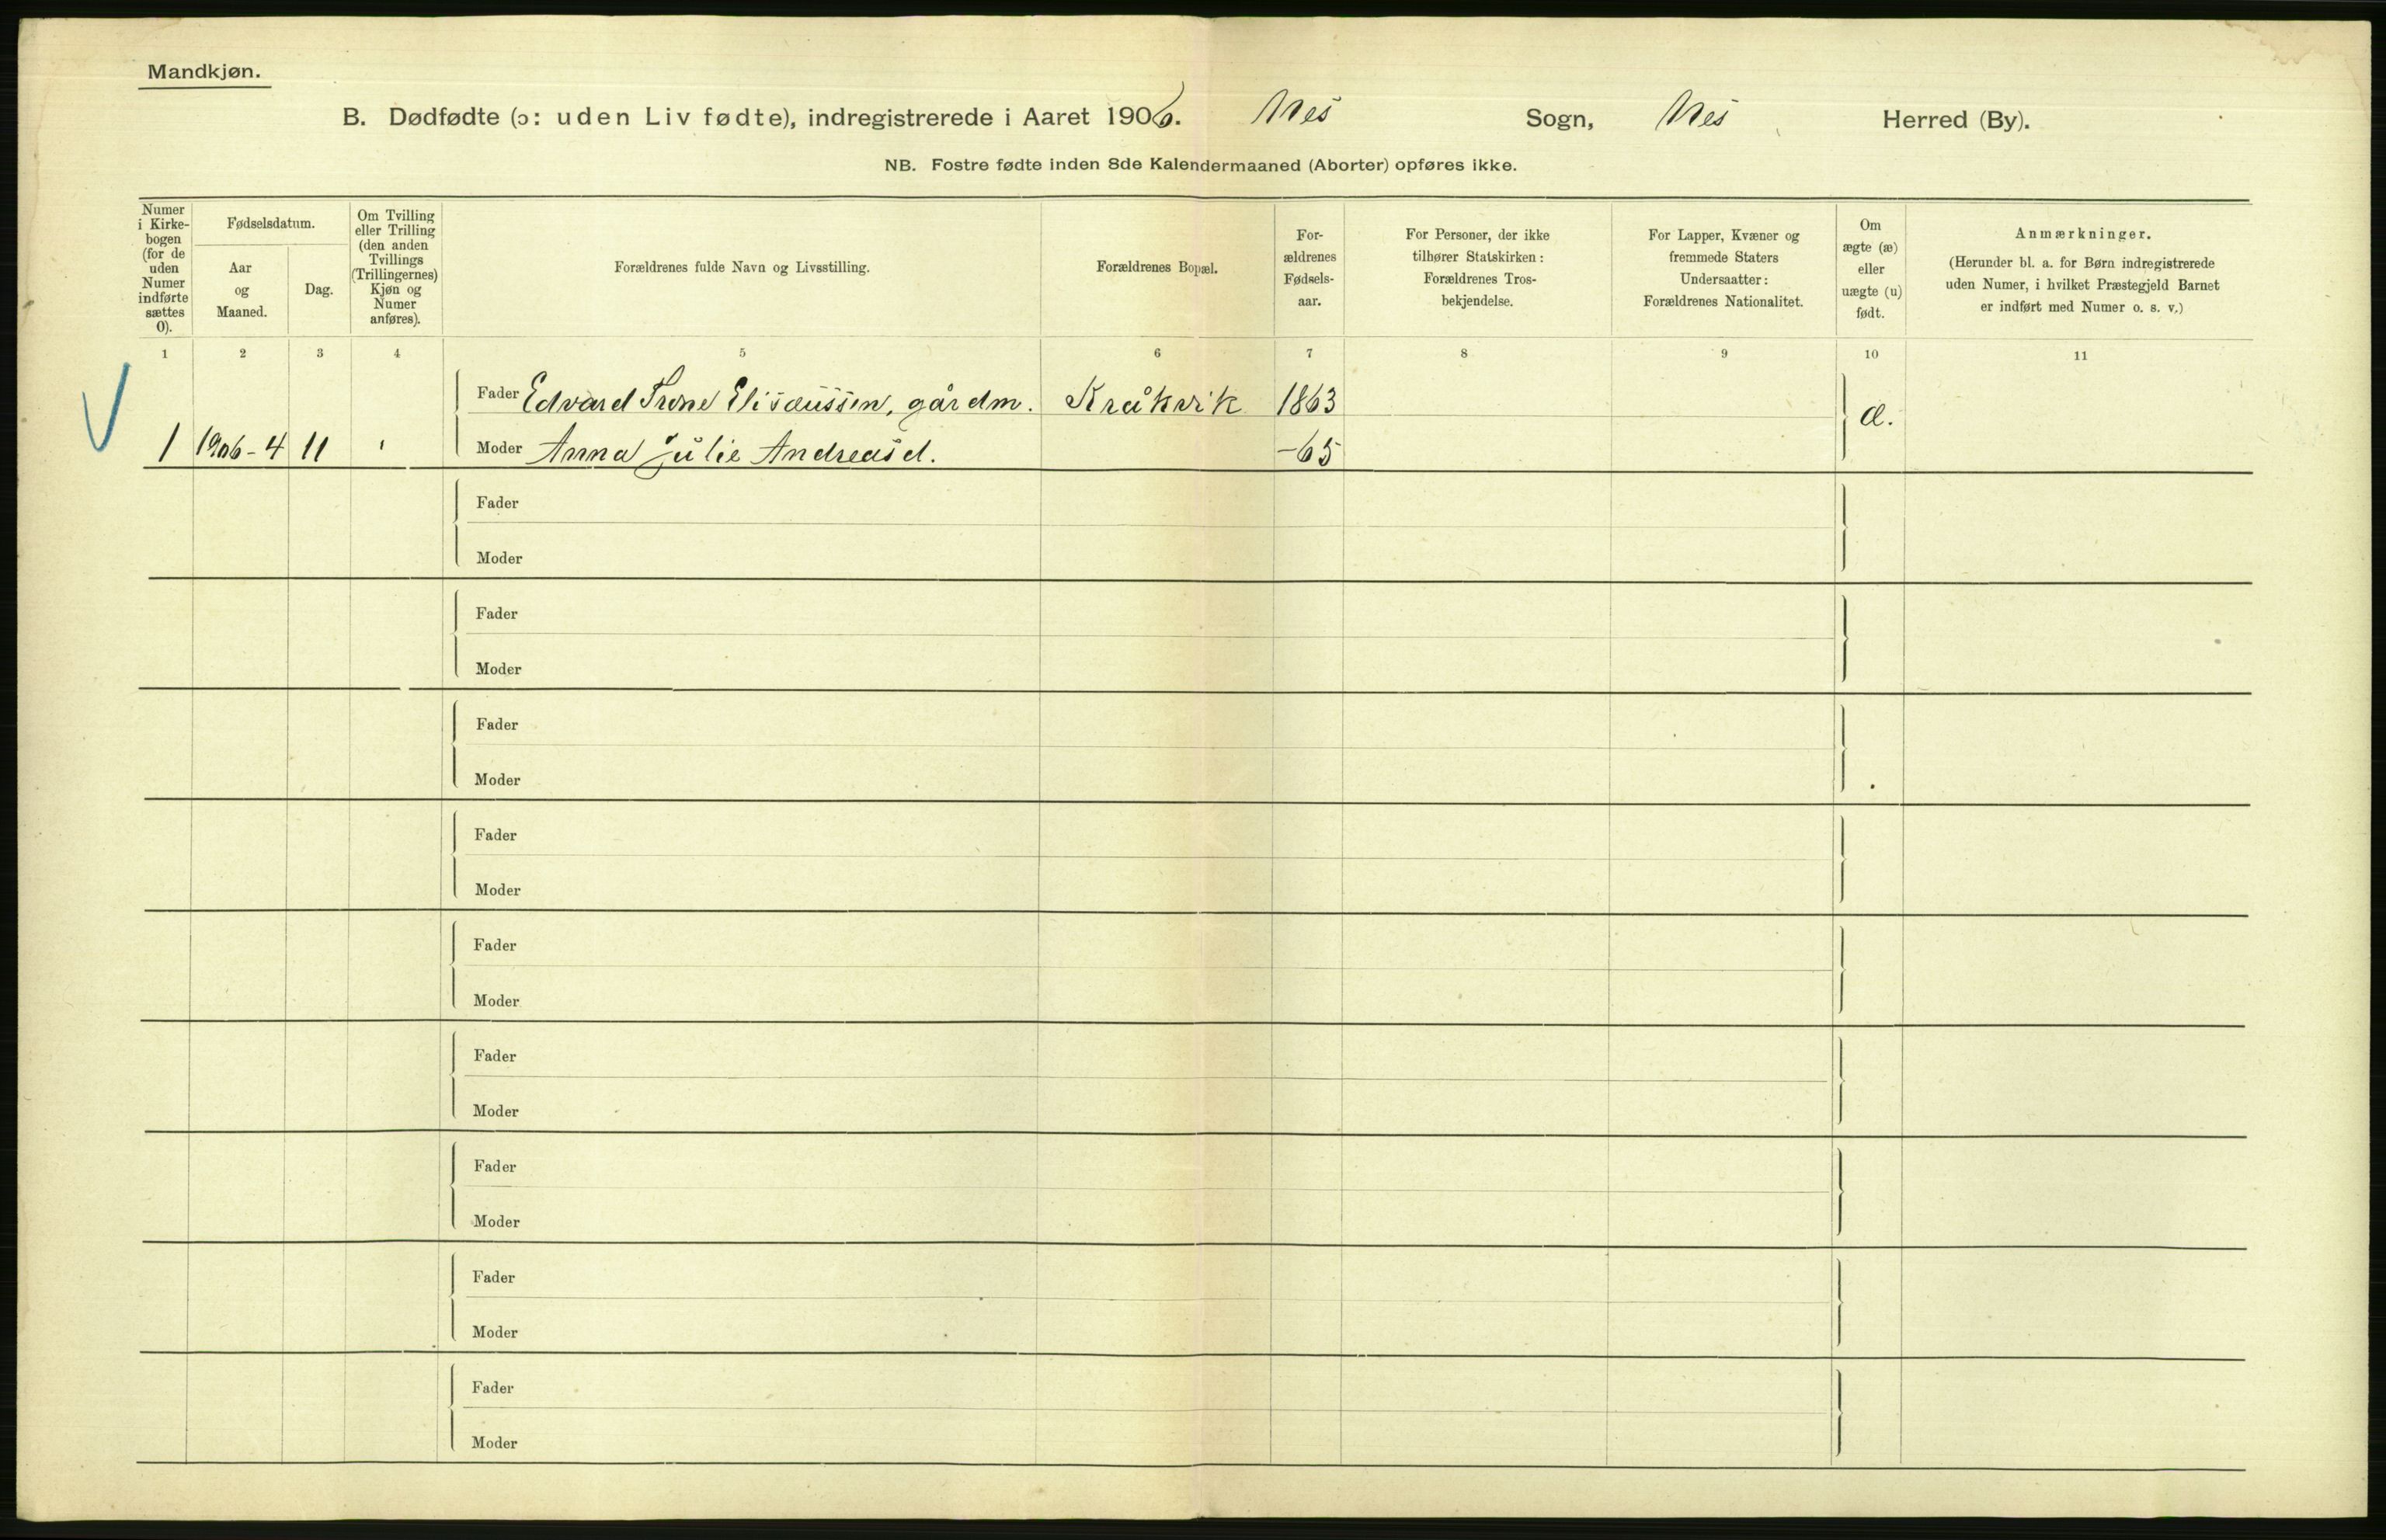 Mandkjøn.
B. Dødfødte (ɔ: uden Liv fødte), indregistrerede i Aaret 1906. Nes Sogn, Nes Herred (By).
NB. Fostre fødte inden 8de Kalendermaaned (Aborter) opføres ikke.
Numer
i Kirke-
bogen
(for de
uden
Numer
indførte
sættes
0).
Fødselsdatum.
Aar
og
Maaned.
Dag.
Om Tvilling
eller Trilling
(den anden
Tvillings
(Trillingernes)
Kjøn og
Numer
anføres).
Forældrenes fulde Navn og Livsstilling.
Forældrenes Bopæl.
For-
ældrenes
Fødsels-
aar.
For Personer, der ikke
tilhører Statskirken:
Forældrenes Tros-
bekjendelse.
For Lapper, Kvæner og
fremmede Staters
Undersaatter:
Forældrenes Nationalitet.
Om
ægte (æ)
eller
uægte (u)
født.
Anmærkninger.
(Herunder bl. a. for Børn indregistrerede
uden Numer, i hvilket Præstegjeld Barnet
er indført med Numer o. s. v.)
1 2 3 4 5 6 7 8 9 10 11
Fader Edvard Elisæussen, gårdm. Kråkvik 1863 æ.
1 1906-4 11 Moder Anna Julie Andreasd. -65
Fader
Moder
Fader
Moder
Fader
Moder
Fader
Moder
Fader
Moder
Fader
Moder
Fader
Moder
Fader
Moder
Fader
Moder